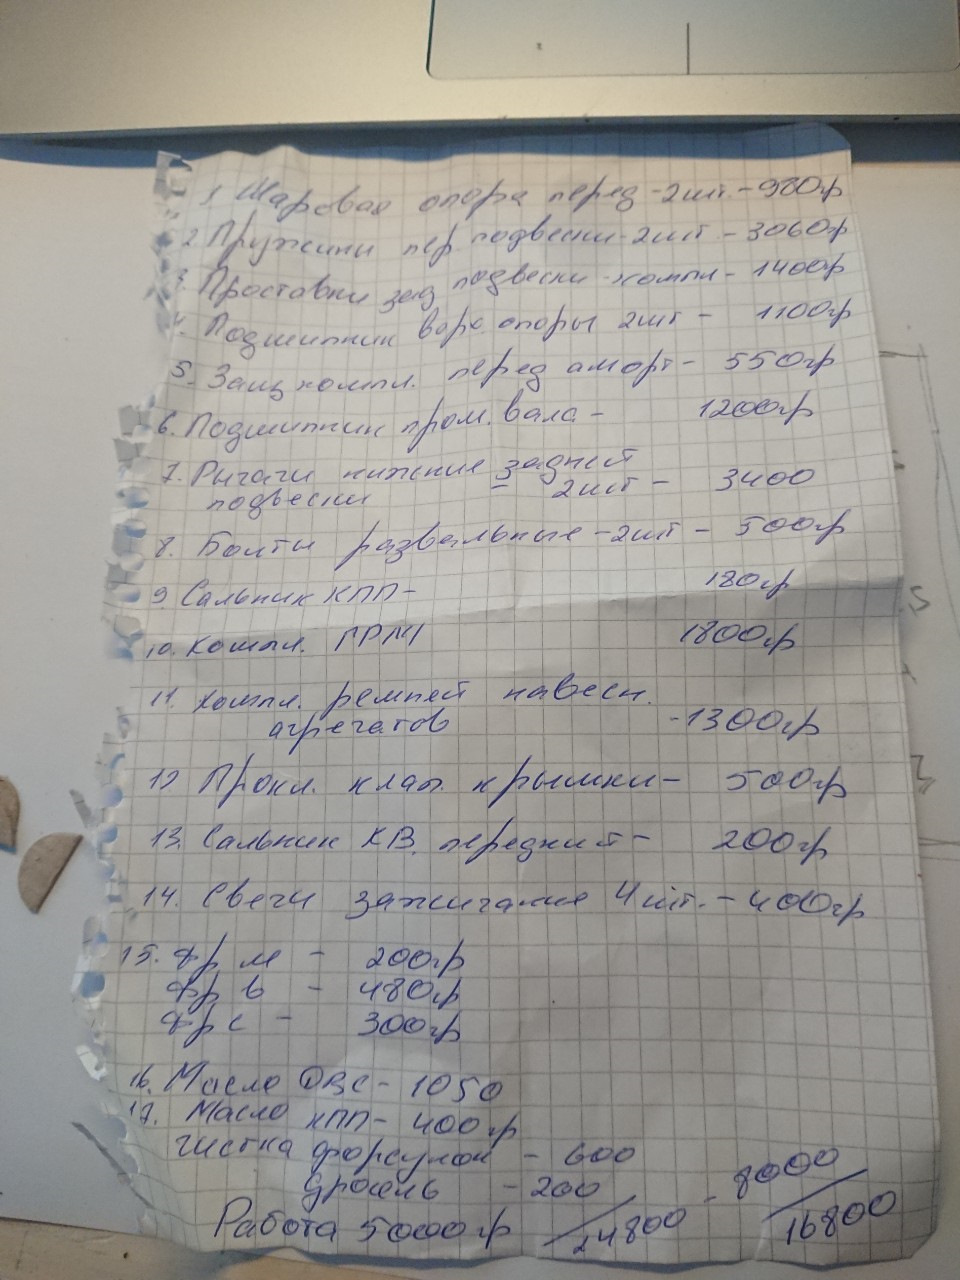 1. Шаровая опора перед - 2 шт. - 980гр
2. Пружини пер подвески - 2 шт - 3060гр
3. Проставки зад подвески компл - 1400гр
4. Подшипник ворс опоры 2 шт - 1100гр
5. Защ компл. перед аморт - 550гр
6. Подшипник пром. вала - 1200гр
7. Рычаги нижние задней
подвески 2 шт - 3400
8. Болты развальные - 2 шт - 500гр
9 Сальник КПП - 180гр
10. Компл. ГРМ 1800гр
11. Компл. ремней навесн.
агрегатов - 1300гр
12 Прокл. клап. крышки - 500гр
13. Сальник КВ. передний - 200гр
14. Свечи зажигания 4 шт. - 400гр
15. фр м - 200гр
фр в - 480гр
фр с - 300гр
16. Масло ДВС - 1050
17. Масло КПП - 400гр
чистка форсунок - 600
дросель - 200 - 8000
Работа 5000гр 24800 16800